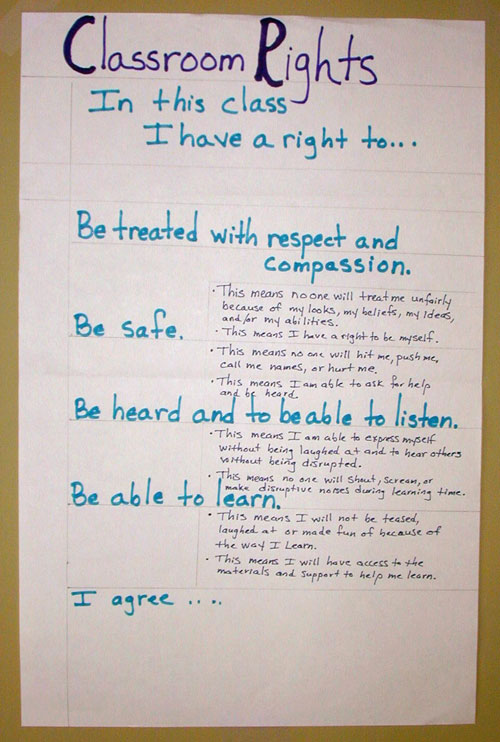 Classroom Rights
In this class
I have a right to...
Be treated with respect and
compassion.
· This means no one will treat me unfairly
because of my looks, my beliefs, my ideas,
and/or my abilities.
Be safe.
· This means I have a right to be myself.
· This means no one will hit me, push me,
call me names, or hurt me.
· This means I am able to ask for help
and be heard.
Be heard and to be able to listen.
· This means I am able to express myself
without being laughed at and to hear others
without being disrupted.
· This means no one will shout, scream, or
make disruptive noises during learning time.
Be able to learn.
· This means I will not be teased,
laughed at or made fun of because of
the way I learn.
· This means I will have access to the
materials and support to help me learn.
I agree ....